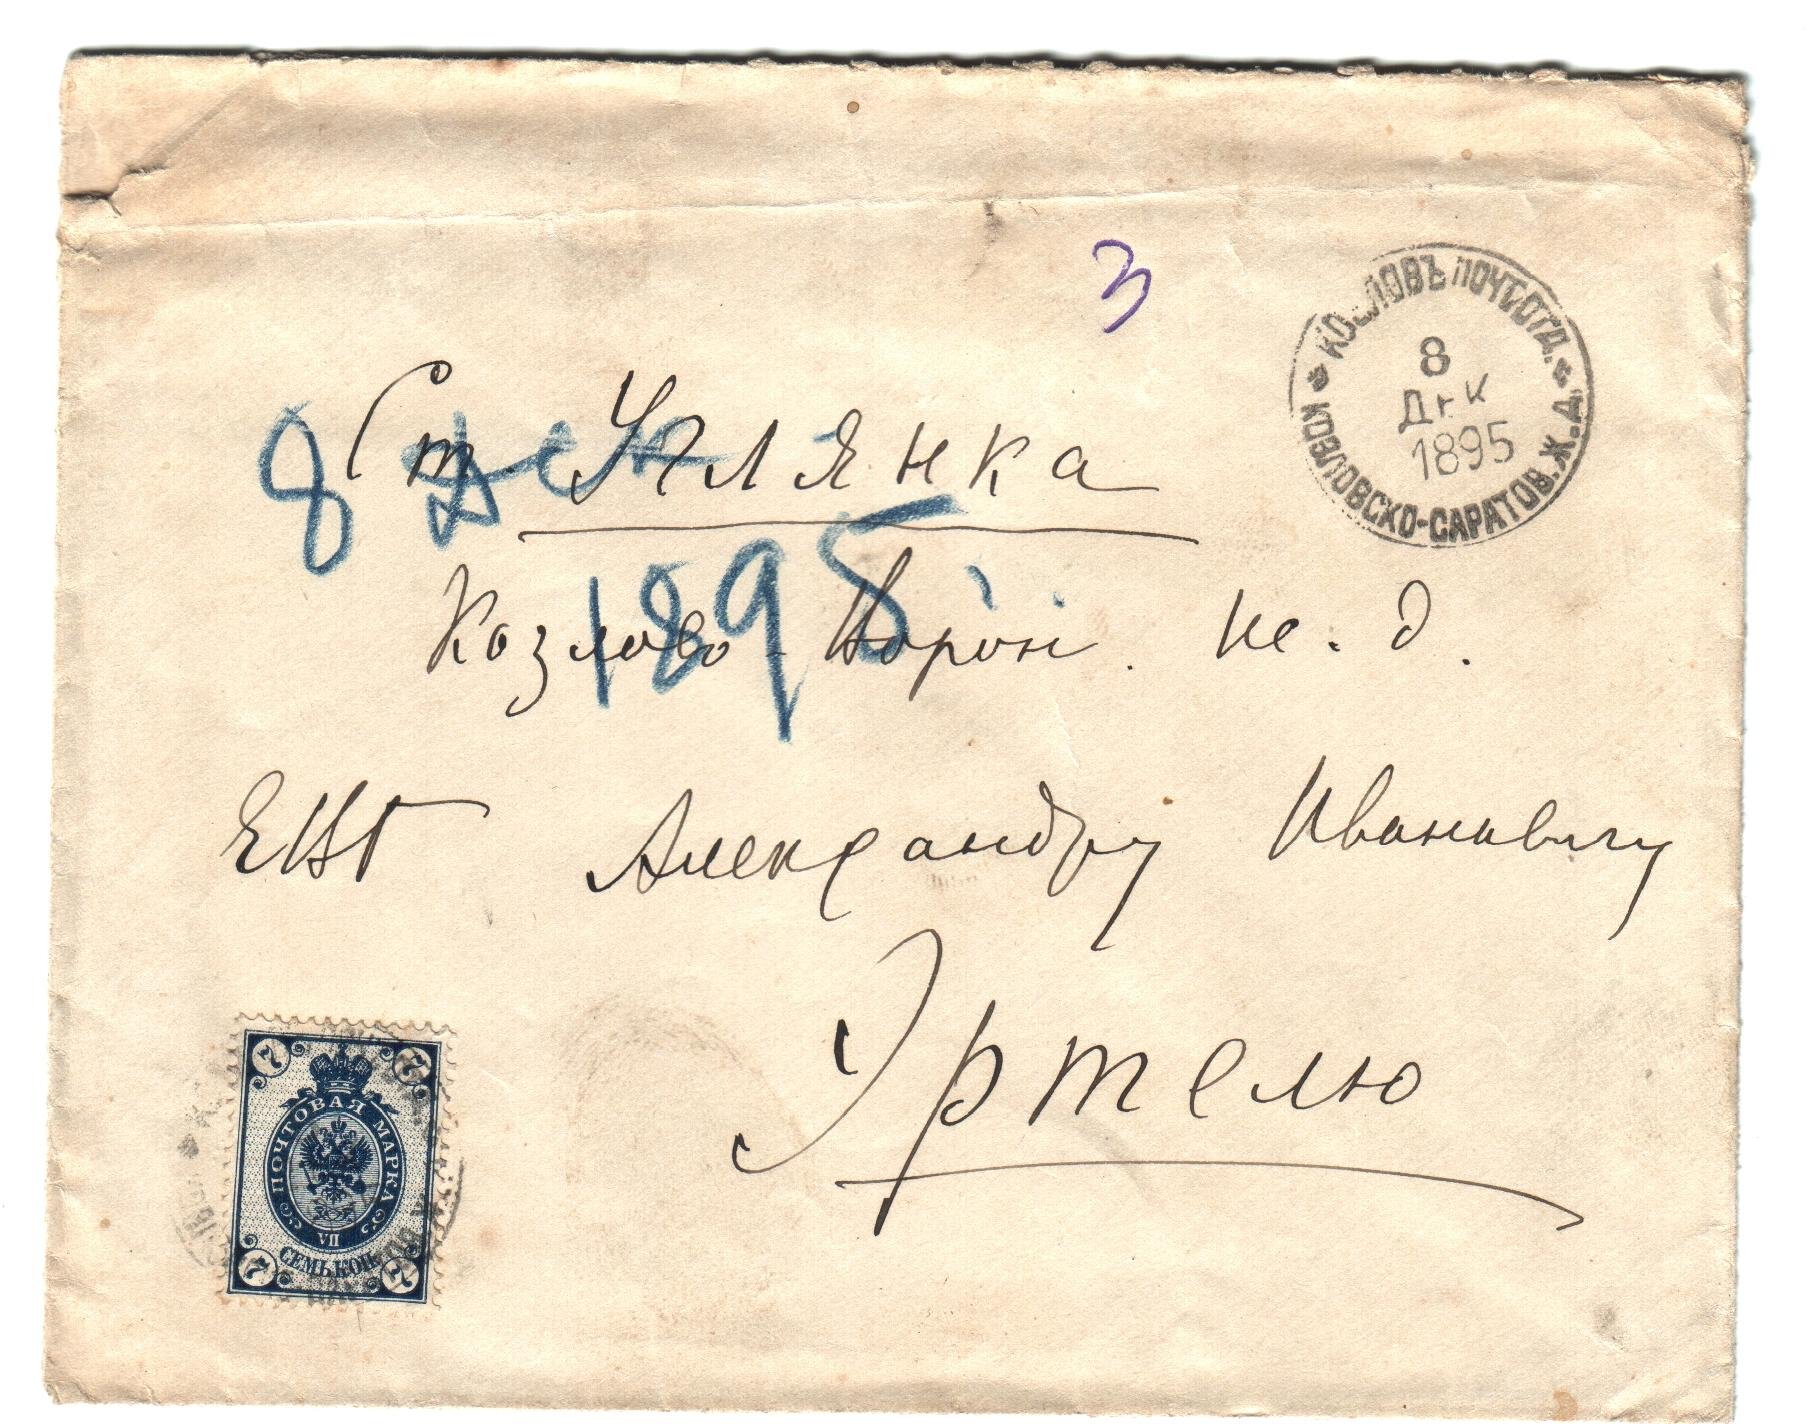 3
КОЗЛОВЪ ПОЧТ.ОТД.
8
Дек
1895
КОЗЛОВСКО-САРАТОВ.Ж.Д.
Ст. Углянка
8 Дек
1895
Козлово-Ворон. ж. д.
ЕВБ Александру Ивановичу
Эртелю
7 7
ПОЧТОВАЯ МАРКА
VII
СЕМЬ КОП.
7 7